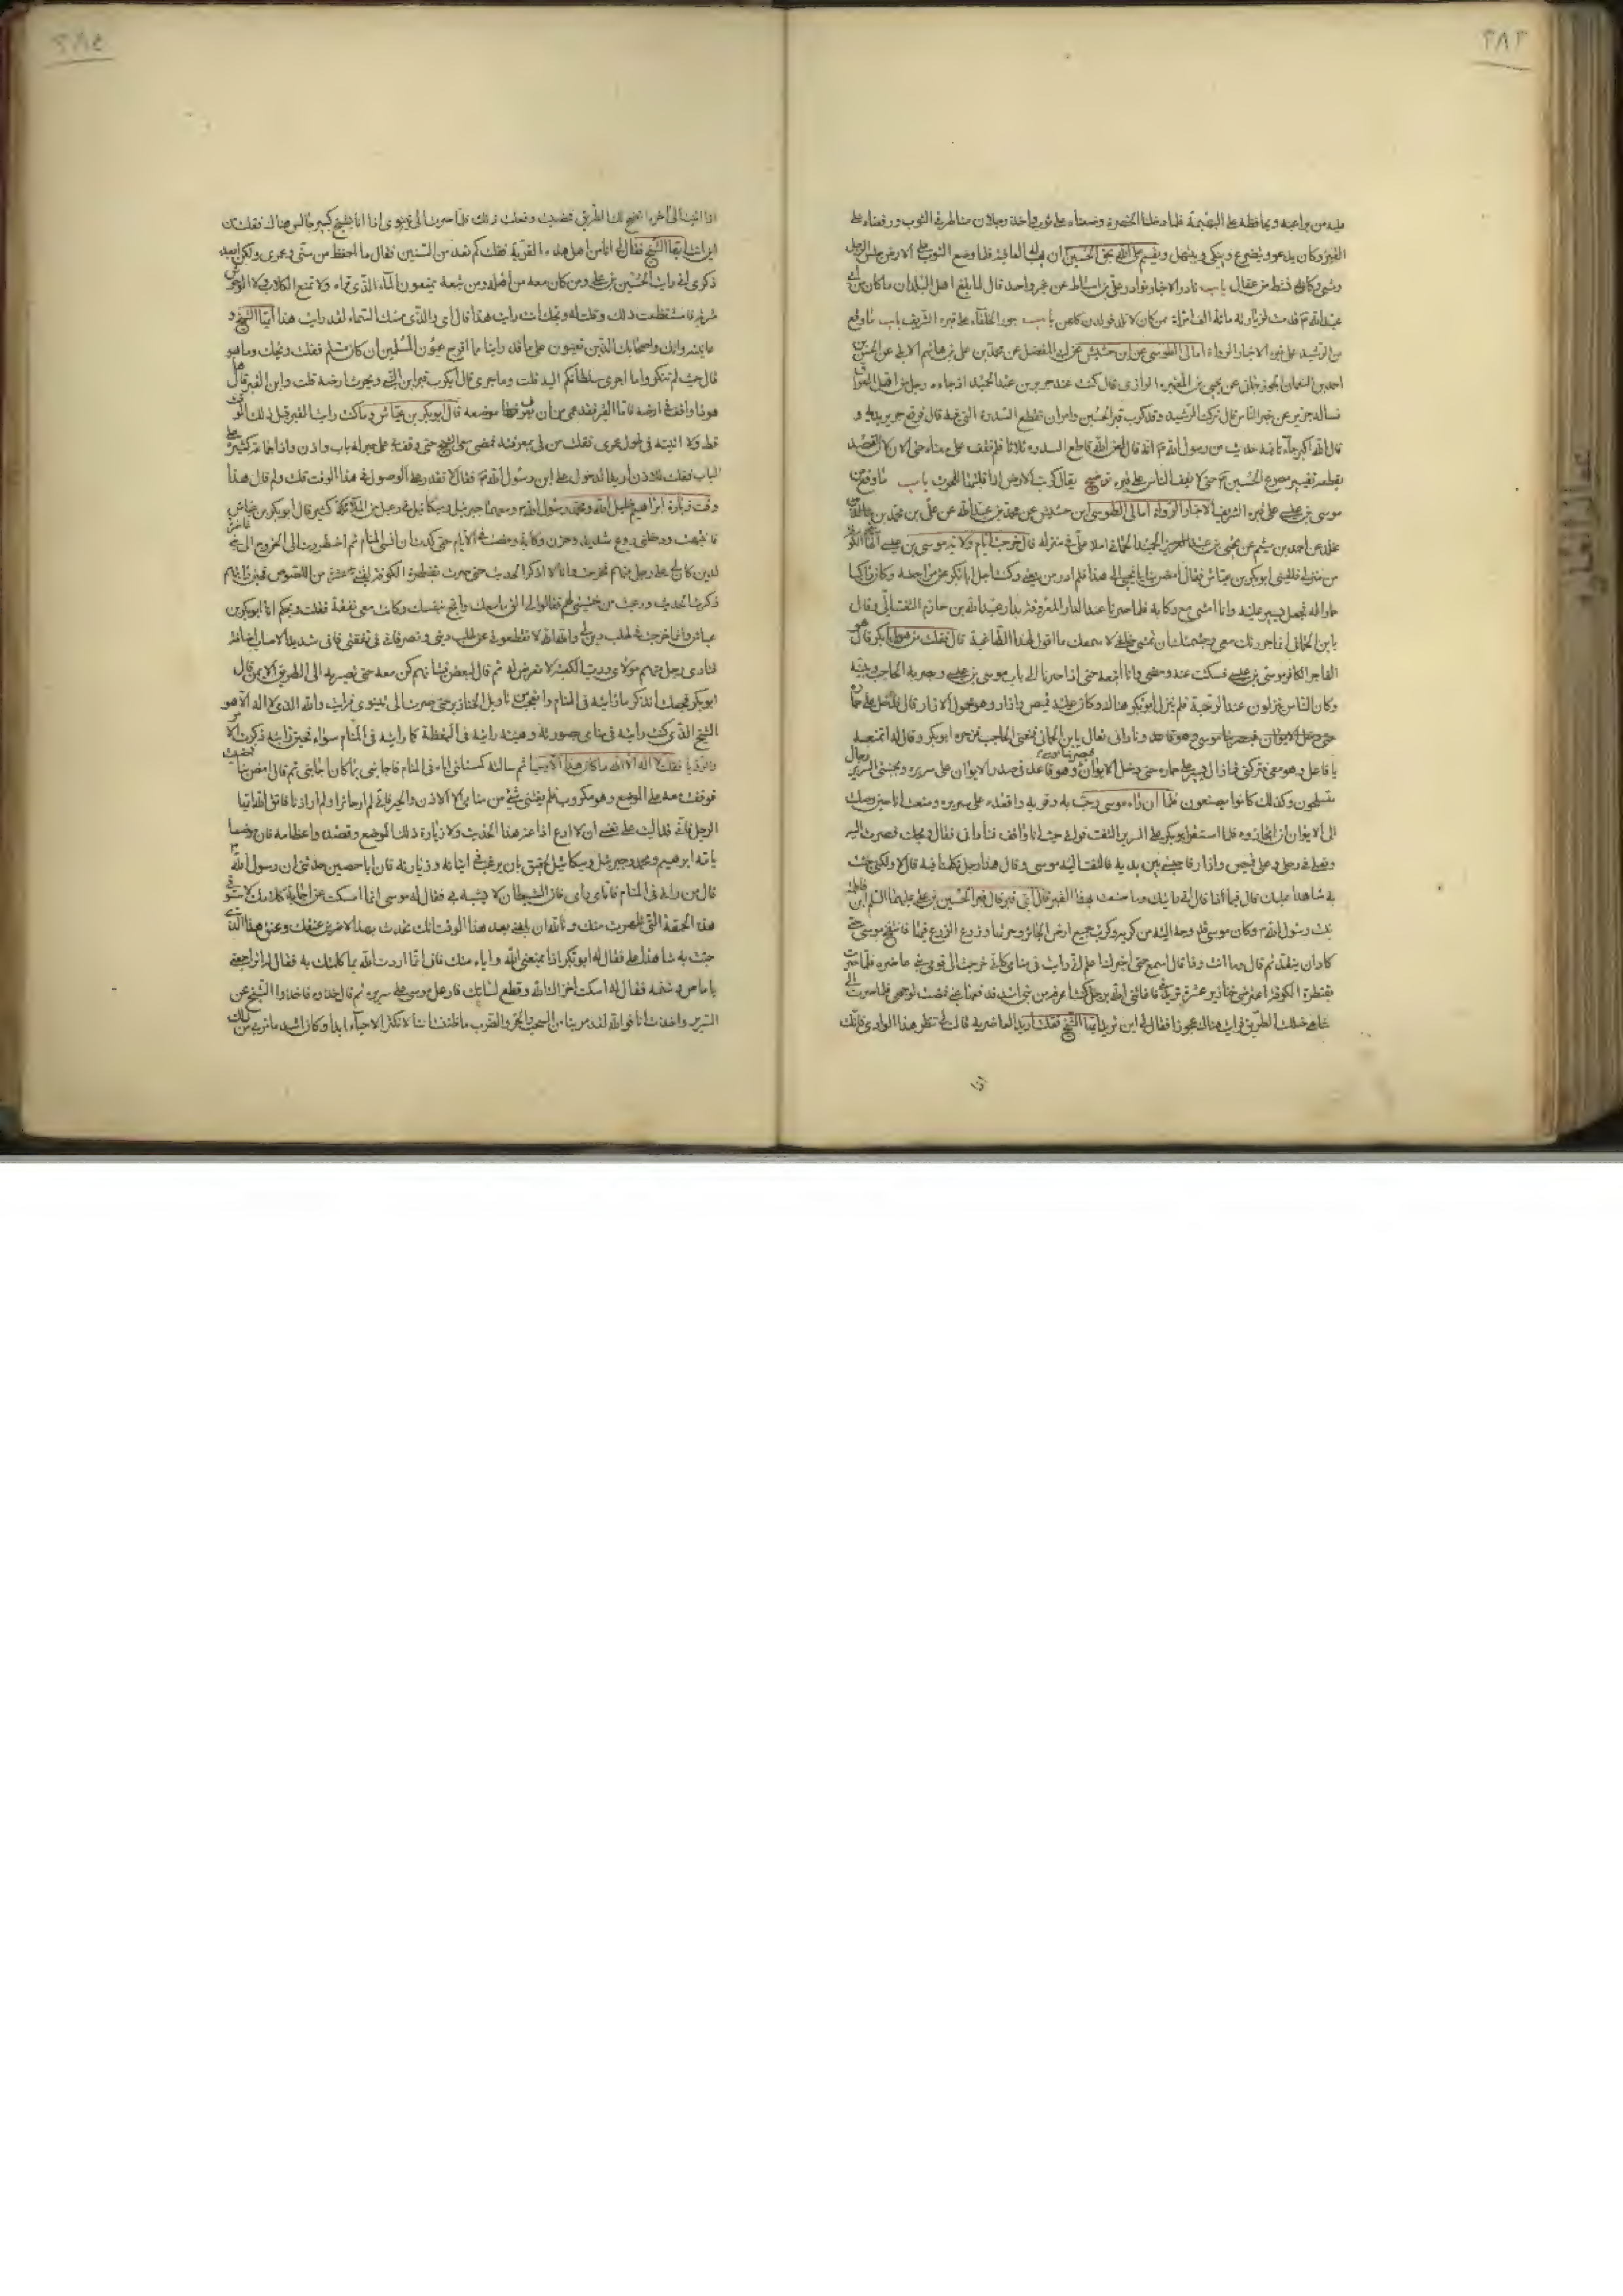 ٣٨٣
القبر وكان يدعو ويتضرع ويبكي ويبتهل ويقسم على الله بحق الحسين ان يهب له العافية فلما وضع الثوب على الارض جلس الرجل
من الرشيد على قبره الاخبار الرواة امالي الطوسي عن ابن حشيش عن ابي المفضل عن محمد بن علي بن هاشم الابلي عن الحسن بن
احمد بن النعمان الجوزجاني عن يحيى بن المغيرة الرازي قال كنت عند جرير بن عبد الحميد اذ جاءه رجل من اهل العراق
فسأله جرير عن خبر الناس فقال تركت الرشيد وقد كرب قبر الحسين وامر ان تقطع السدرة التي فيه قال فرفع جرير يديه و
قال الله اكبر جاءنا فيه حديث عن رسول الله ص انه قال لعن الله قاطع السدرة ثلاثا فلم نقف على معناه حتى الان لان القصد
بقطعه تغيير مصرع الحسين ع حتى لا يقف الناس على قبره توضيح يقال كربت الارض اذا قلبتها للحرث باب ما وقع من
موسى بن عيسى على قبره الشريف الاخبار الرواة امالي الطوسي ابن حشيش عن محمد بن عبد الله عن علي بن محمد بن مخلد
عن احمد بن ميثم عن يحيى بن عبد الحميد الحماني املاء علي في منزله قال خرجت ايام ولاية موسى بن عيسى الهاشمي الكوفة
من منزلي فلقيني ابو بكر بن عياش فقال امض بنا يا يحيى الى هذا فلم ادر من يعني وكنت اجل ابا بكر عن مراجعته وكان راكبا
حمارا له فجعل يسير عليه وانا امشي مع ركابه فلما صرنا عند الدار المعروفة بدار عبد الله بن حازم التفت الي وقال
يا بن الحماني انما جررتك معي وجشمتك ان تمشي خلفي لاسمعك ما اقول لهذا الطاغية قال فقلت من هو يا ابا بكر قال هو
الفاجر الكافر موسى بن عيسى فسكت عنه ومضى وانا اتبعه حتى اذا صرنا الى باب موسى بن عيسى وبصر به الحاجب وتبينه
وكان الناس ينزلون عند الرحبة فلم ينزل ابو بكر هناك وكان عليه قميص وازار وهو محلول الازار قال فدخل على حماره
وناداني تعال يا بن الحماني فمنعني الحاجب فزجره ابو بكر وقال له اتمنعه
يا فاعل وهو معي فتركني فما زال يسير على حماره حتى دخل الايوان فبصر بنا موسى وهو قاعد في صدر الايوان على سريره وبجنبتي السرير رجال
متسلحون وكذلك كانوا يصنعون فلما ان رآه موسى رحب به وقربه واقعده على سريره ومنعت انا حين وصلت
الى الايوان ان اتجاوزه فلما استقر ابو بكر على السرير التفت فرآني حيث انا واقف فناداني فقال ويحك فصرت اليه
ونعلي في رجلي وعلي قميص وازار فاجلسني بين يديه فالتفت اليه موسى وقال هذا رجل تكلمنا فيه قال لا ولكني جئت
به شاهدا عليك قال فيما ذا قال اني رايتك وما صنعت بهذا القبر قال اي قبر قال قبر الحسين بن علي عليهما السلم ابن فاطمة
بنت رسول الله ص وكان موسى قد وجه اليه من كربه وكرب جميع ارض الحائر وحرثها وزرع الزرع فيها فانتفخ موسى حتى
كاد ان ينقد ثم قال وما انت وذا قال اسمع حتى اخبرك اعلم اني رايت في منامي كاني خرجت الى قومي بني غاضرة فلما صرت
بقنطرة الكوفة اعترضني خنازير عشرة تريدني فاغاثني الله برجل كنت اعرفه من بني اسد فدفعها عني فمضيت لوجهي فلما صرت الى
شاهي ضللت الطريق فرايت هناك عجوزا فقالت لي اين تريد ايها الشيخ فقلت اريد الغاضرية قالت لي تنظر هذا الوادي فانك
اذا
٣٨٤
اذا اتيت الى اخره اتضح لك الطريق فمضيت وفعلت ذلك فلما صرت الى نينوى اذا انا بشيخ كبير جالس هناك فقلت من
اين انت ايها الشيخ فقال لي انا من اهل هذه القرية فقلت كم تعد من السنين فقال ما احفظ من سني وعمري ولكن ابعد
ذكري اني رايت الحسين بن علي ومن كان معه من اهله ومن تبعه يمنعون الماء الذي تراه ولا تمنع الكلاب ولا الوحوش
شربه فاستفظعت ذلك وقلت له ويحك انت رايت هذا قال اي والذي سمك السماء لقد رايت هذا ايها الشيخ و
عاينته وانك واصحابك الذين تعينون على ما قد راينا مما اقرح عيون المسلمين ان كان مسلم فقلت ويحك وما هو
قال حيث لم تنكروا ما اجرى سلطانكم اليه قلت وما جرى قال ايكرب قبر ابن النبي وتحرث ارضه قلت واين القبر قال ها
هو ذا واقف في ارضه فاما القبر فقد عمي عن ان يعرف موضعه قال ابو بكر بن عياش وما كنت رايت القبر قبل ذلك الوقت
قط ولا اتيته في طول عمري فقلت من لي بمعرفته فمضى معي الشيخ حتى وقف بي على حير له باب واذن واذا جماعة كثيرة على
الباب فقلت للاذن اريد الدخول على ابن رسول الله ص فقال لا تقدر على الوصول في هذا الوقت قلت ولم قال هذا
وقت زيارة ابراهيم خليل الله ومحمد رسول الله ومعهما جبرئيل وميكائيل في رعيل من الملائكة كثير قال ابو بكر بن عياش
فانتبهت وقد دخلني روع شديد وحزن وكابة ومضت بي الايام حتى كدت ان انسى المنام ثم اضطررت الى الخروج الى بني غاضرة
لدين كان لي على رجل منهم فخرجت وانا لا اذكر الحديث حتى صرت بقنطرة الكوفة لقيني عشرة من اللصوص فحين رايتهم
ذكرت الحديث ورعبت من خشيتي لهم فقالوا لي الق ما معك وانج بنفسك وكانت معي نفقة فقلت ويحكم انا ابو بكر بن
عياش وانما خرجت في طلب دين لي والله الله لا تقطعوني عن طلب ديني وتضروني في نفقتي فاني شديد الاضاقة
فنادى رجل منهم مولاي ورب الكعبة لا تعرض له ثم قال لبعض فتيانهم كن معه حتى تصير به الى الطريق الايمن قال
ابو بكر فجعلت اتذكر ما رايته في المنام واتعجب من تاويل الخنازير حتى صرت الى نينوى فرايت والله الذي لا اله الا هو
الشيخ الذي كنت رايته في منامي بصورته وهيئته رايته في اليقظة كما رايته في المنام سواء فحين رايته ذكرت الامر
والرؤيا فقلت لا اله الا الله ما كان هذا الا وحيا ثم سالته كمسئلتي اياه في المنام فاجابني بما كان اجابني ثم قال امض بنا فمضيت
فوقفت معه على الموضع وهو مكروب فلم يفتني شيء من منامي الا الاذن والحير فاني لم ار حائرا ولم ار اذنا فاتق الله ايها
الرجل فاني قد اليت على نفسي ان لا ادع اذاعة هذا الحديث ولا زيارة ذلك الموضع وقصده واعظامه فان موضعا
ياتيه ابراهيم ومحمد وجبرئيل وميكائيل لحقيق بان يرغب في اتيانه وزيارته فان ابا حصين حدثني ان رسول الله ص
قال من راني في المنام فاياي راى فان الشيطان لا يتشبه بي فقال له موسى انما امسكت عن اجابة كلامك لاستوفي
هذه الحمقة التي ظهرت منك وتالله ان بلغني بعد هذا الوقت انك تحدث بهذا لاضربن عنقك وعنق هذا الذي
جئت به شاهدا علي فقال له ابو بكر اذا يمنعني الله واياه منك فاني انما اردت الله بما كلمتك به فقال له اتراجعني
يا ماص وشتمه فقال له اسكت اخزاك الله وقطع لسانك فارعد موسى على سريره ثم قال خذوه فاخذوا الشيخ عن
السرير واخذت انا فوالله لقد مر بنا من السحب والجر والضرب ما ظننت اننا لا نكثر الاحياء ابدا وكان اشد ما مر بي من ذلك